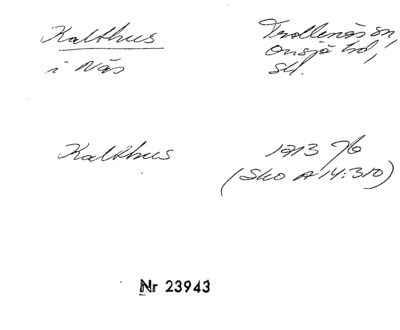 Kalthus
i Nås
Trollenäs sn,
Onsjö hd,
Sk.
Kalthus
1713 9/6
(Sko A 14:310)
Nr 23943